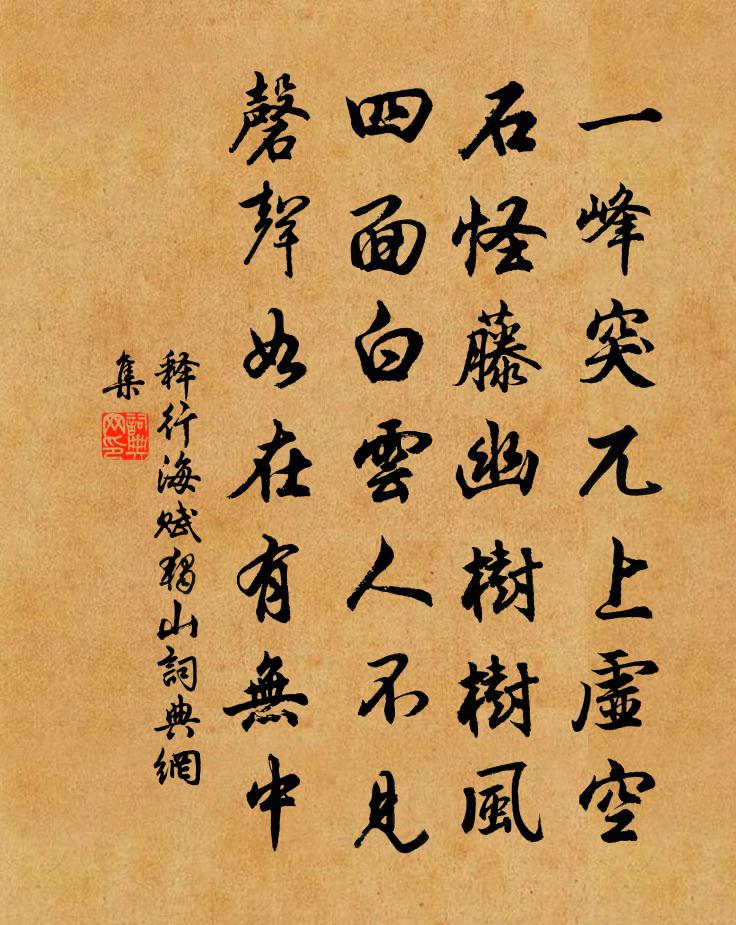 一峰突兀上虛空
石怪藤幽樹樹風
四面白雲人不見
磬聲如在有無中
释行海赋獨山詞典網
集
詞典
网印